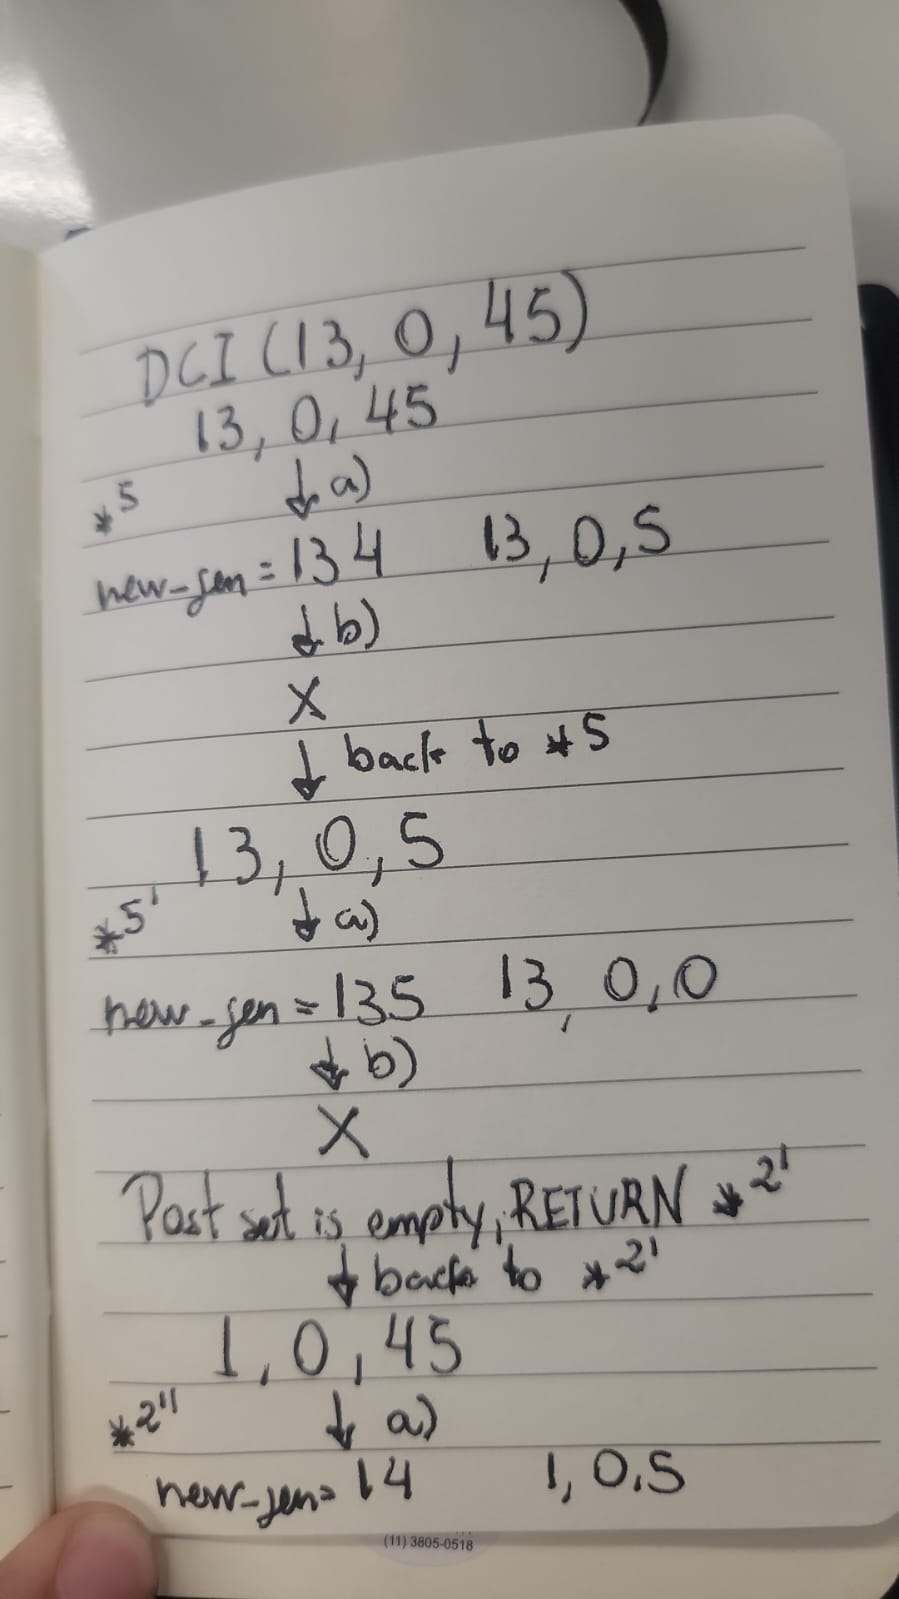 DCI (13, 0, 45)
13, 0, 45
*5 ↓ a)
new_gen = 134 13, 0, 5
↓ b)
X
↓ back to *5
13, 0, 5
*5' ↓ a)
new_gen = 135 13, 0, 0
↓ b)
X
Post set is empty, RETURN *2'
↓ back to *2'
1, 0, 45
*2'' ↓ a)
new_gen = 14 1, 0, 5
(11) 3805-0518